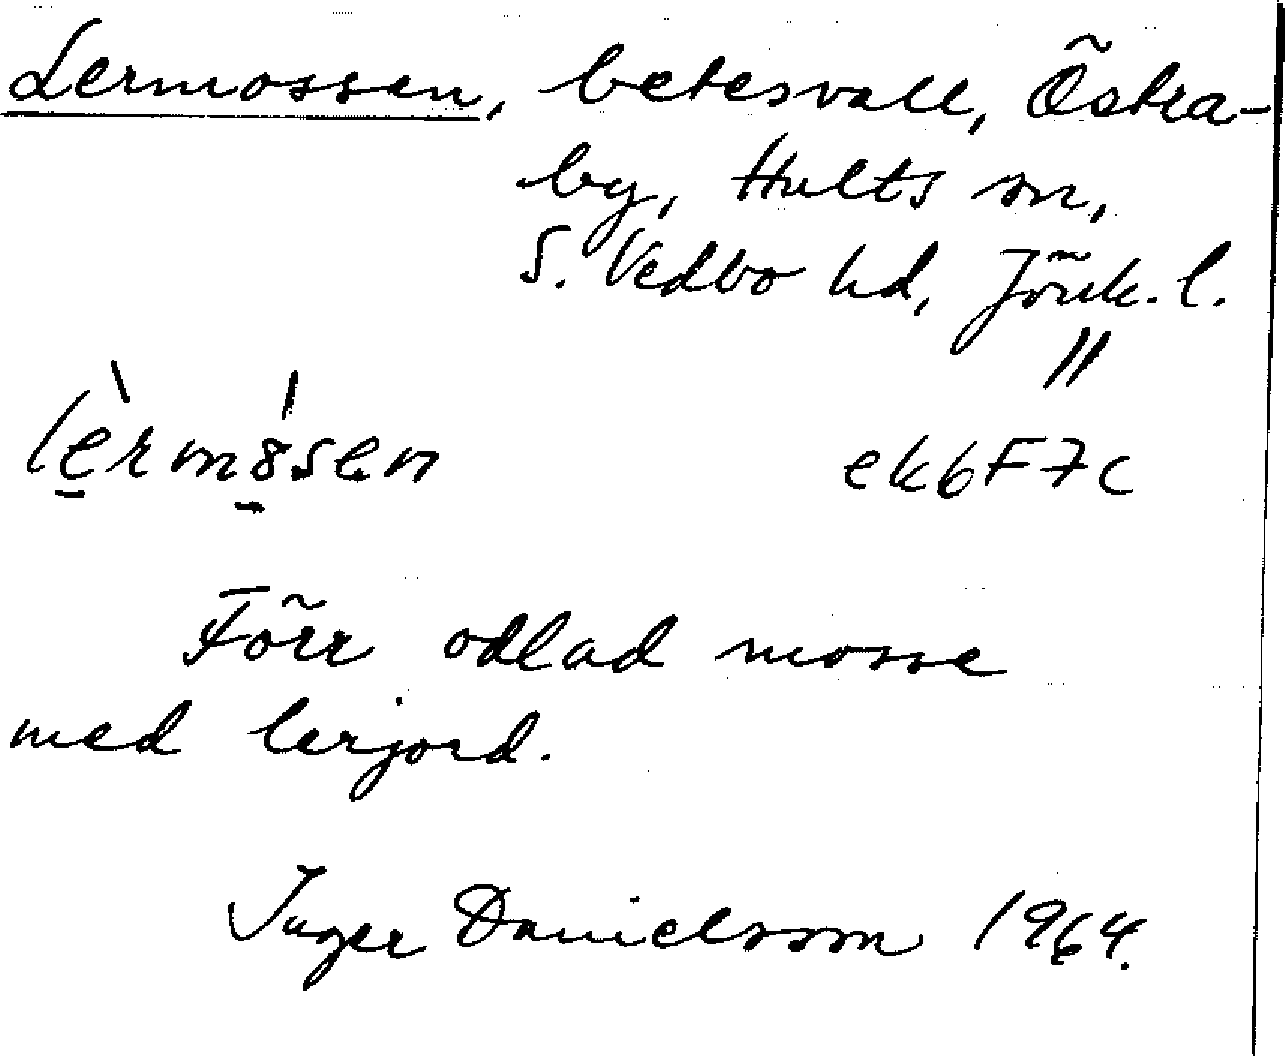 Lermossen, betesvall, Östra-
by, Hults sn,
S. Vedbo hd, Jönk. l.
lè̠rmo̠sen ek6F7c
Förr odlad mosse
med lerjord.
Inger Danielsson 1964.